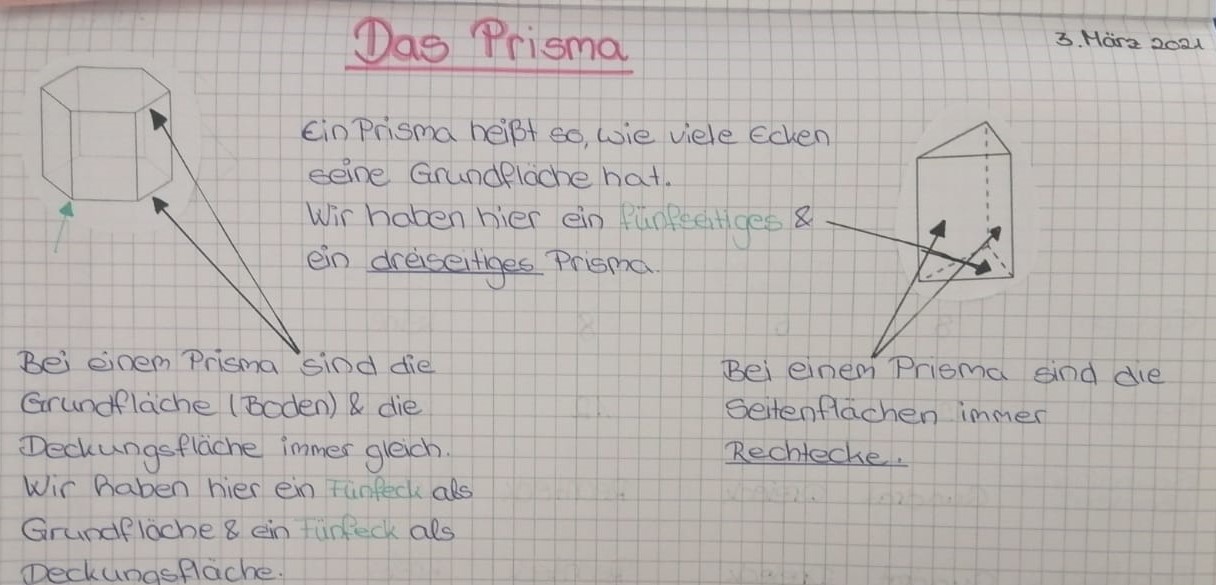 Das Prisma
3. März 2021
Ein Prisma heißt so, wie viele Ecken
seine Grundfläche hat.
Wir haben hier ein fünfseitiges &
ein dreiseitiges Prisma.
Bei einem Prisma sind die
Grundfläche (Boden) & die
Deckungsfläche immer gleich.
Wir haben hier ein Fünfeck als
Grundfläche & ein Fünfeck als
Deckungsfläche.
Bei einem Prisma sind die
Seitenflächen immer
Rechtecke.